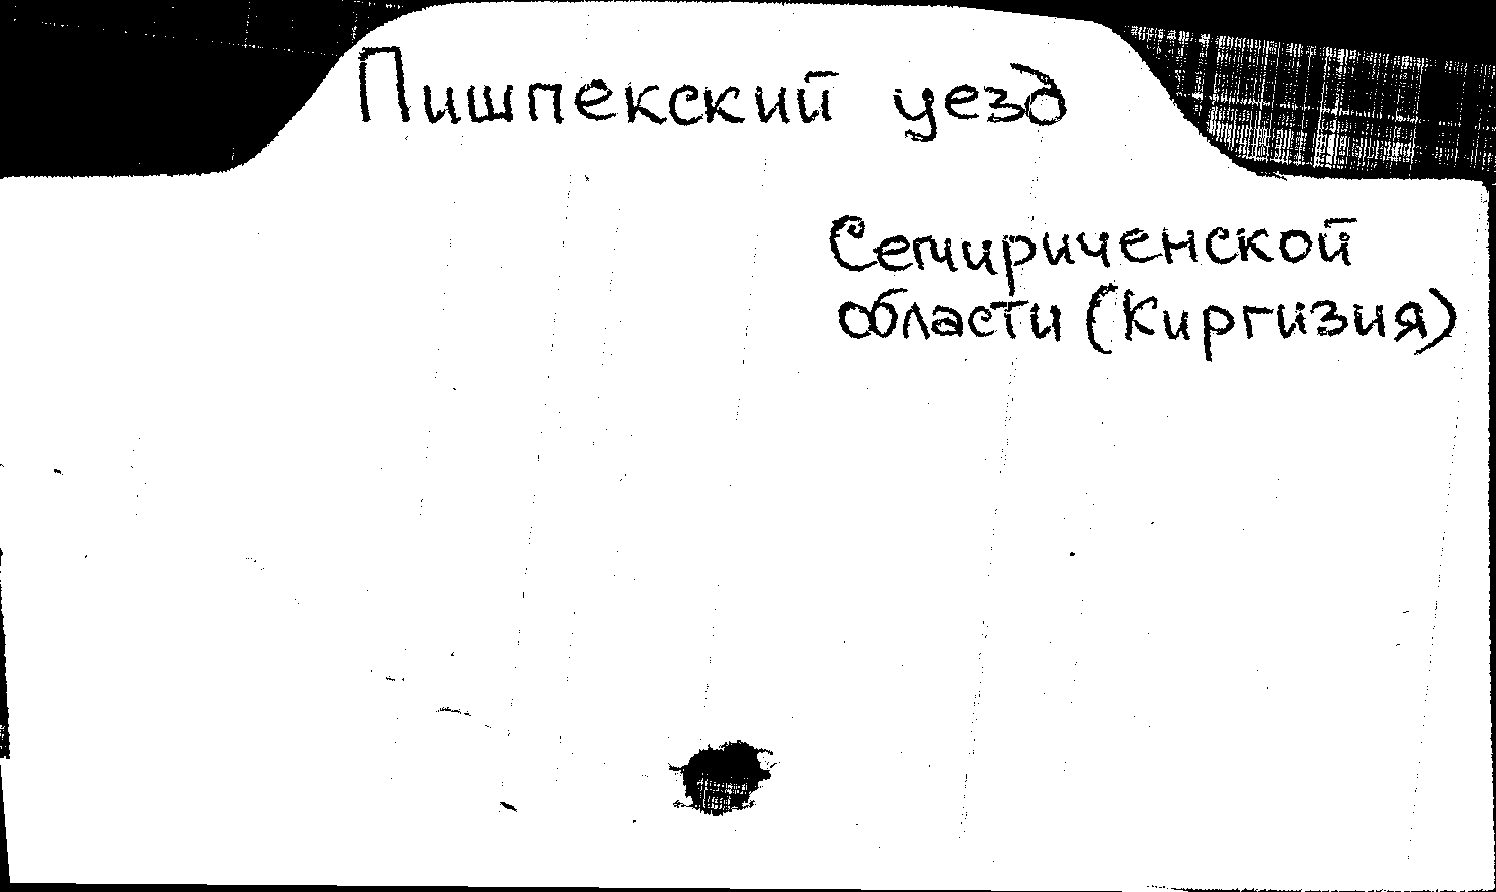 Пишпекский уезд
Семириченской
области (Киргизия)